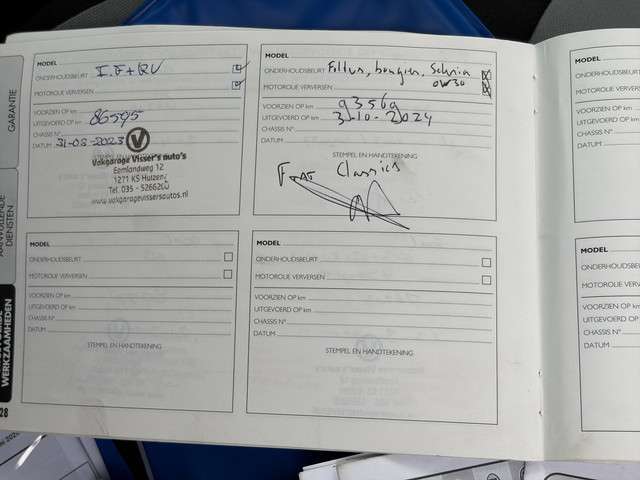 GARANTIE
AANVULLENDE
DIENSTEN
WERKZAAMHEDEN
28
MODEL
ONDERHOUDSBEURT I.G + RU
MOTOROLIE VERVERSEN
VOORZIEN OP km
UITGEVOERD OP km 86595
CHASSIS N°
DATUM 31-08-2023
STEMPEL EN HANDTEKENING
Vakgarage Visser's auto's
Eemlandweg 12
1271 KS Huizen
Tel. 035 - 5266200
www.vakgaragevissersautos.nl
MODEL
ONDERHOUDSBEURT Filters, bougies,
MOTOROLIE VERVERSEN 0W30
VOORZIEN OP km
UITGEVOERD OP km 93569
CHASSIS N° 3-10-2024
DATUM
STEMPEL EN HANDTEKENING
Classics
MODEL
ONDERHOUDSBEURT
MOTOROLIE VERVERSEN
VOORZIEN OP km
UITGEVOERD OP km
CHASSIS N°
DATUM
STEMPEL EN HANDTEKENING
MODEL
ONDERHOUDSBEURT
MOTOROLIE VERVERSEN
VOORZIEN OP km
UITGEVOERD OP km
CHASSIS N°
DATUM
STEMPEL EN HANDTEKENING
MODEL
ONDERHOUDSBEURT
MOTOROLIE VERVER
VOORZIEN OP km
UITGEVOERD OP km
CHASSIS N°
DATUM
MODEL
ONDERHOUDSBEU
MOTOROLIE VERV
VOORZIEN OP km
UITGEVOERD OP k
CHASSIS N°
DATUM